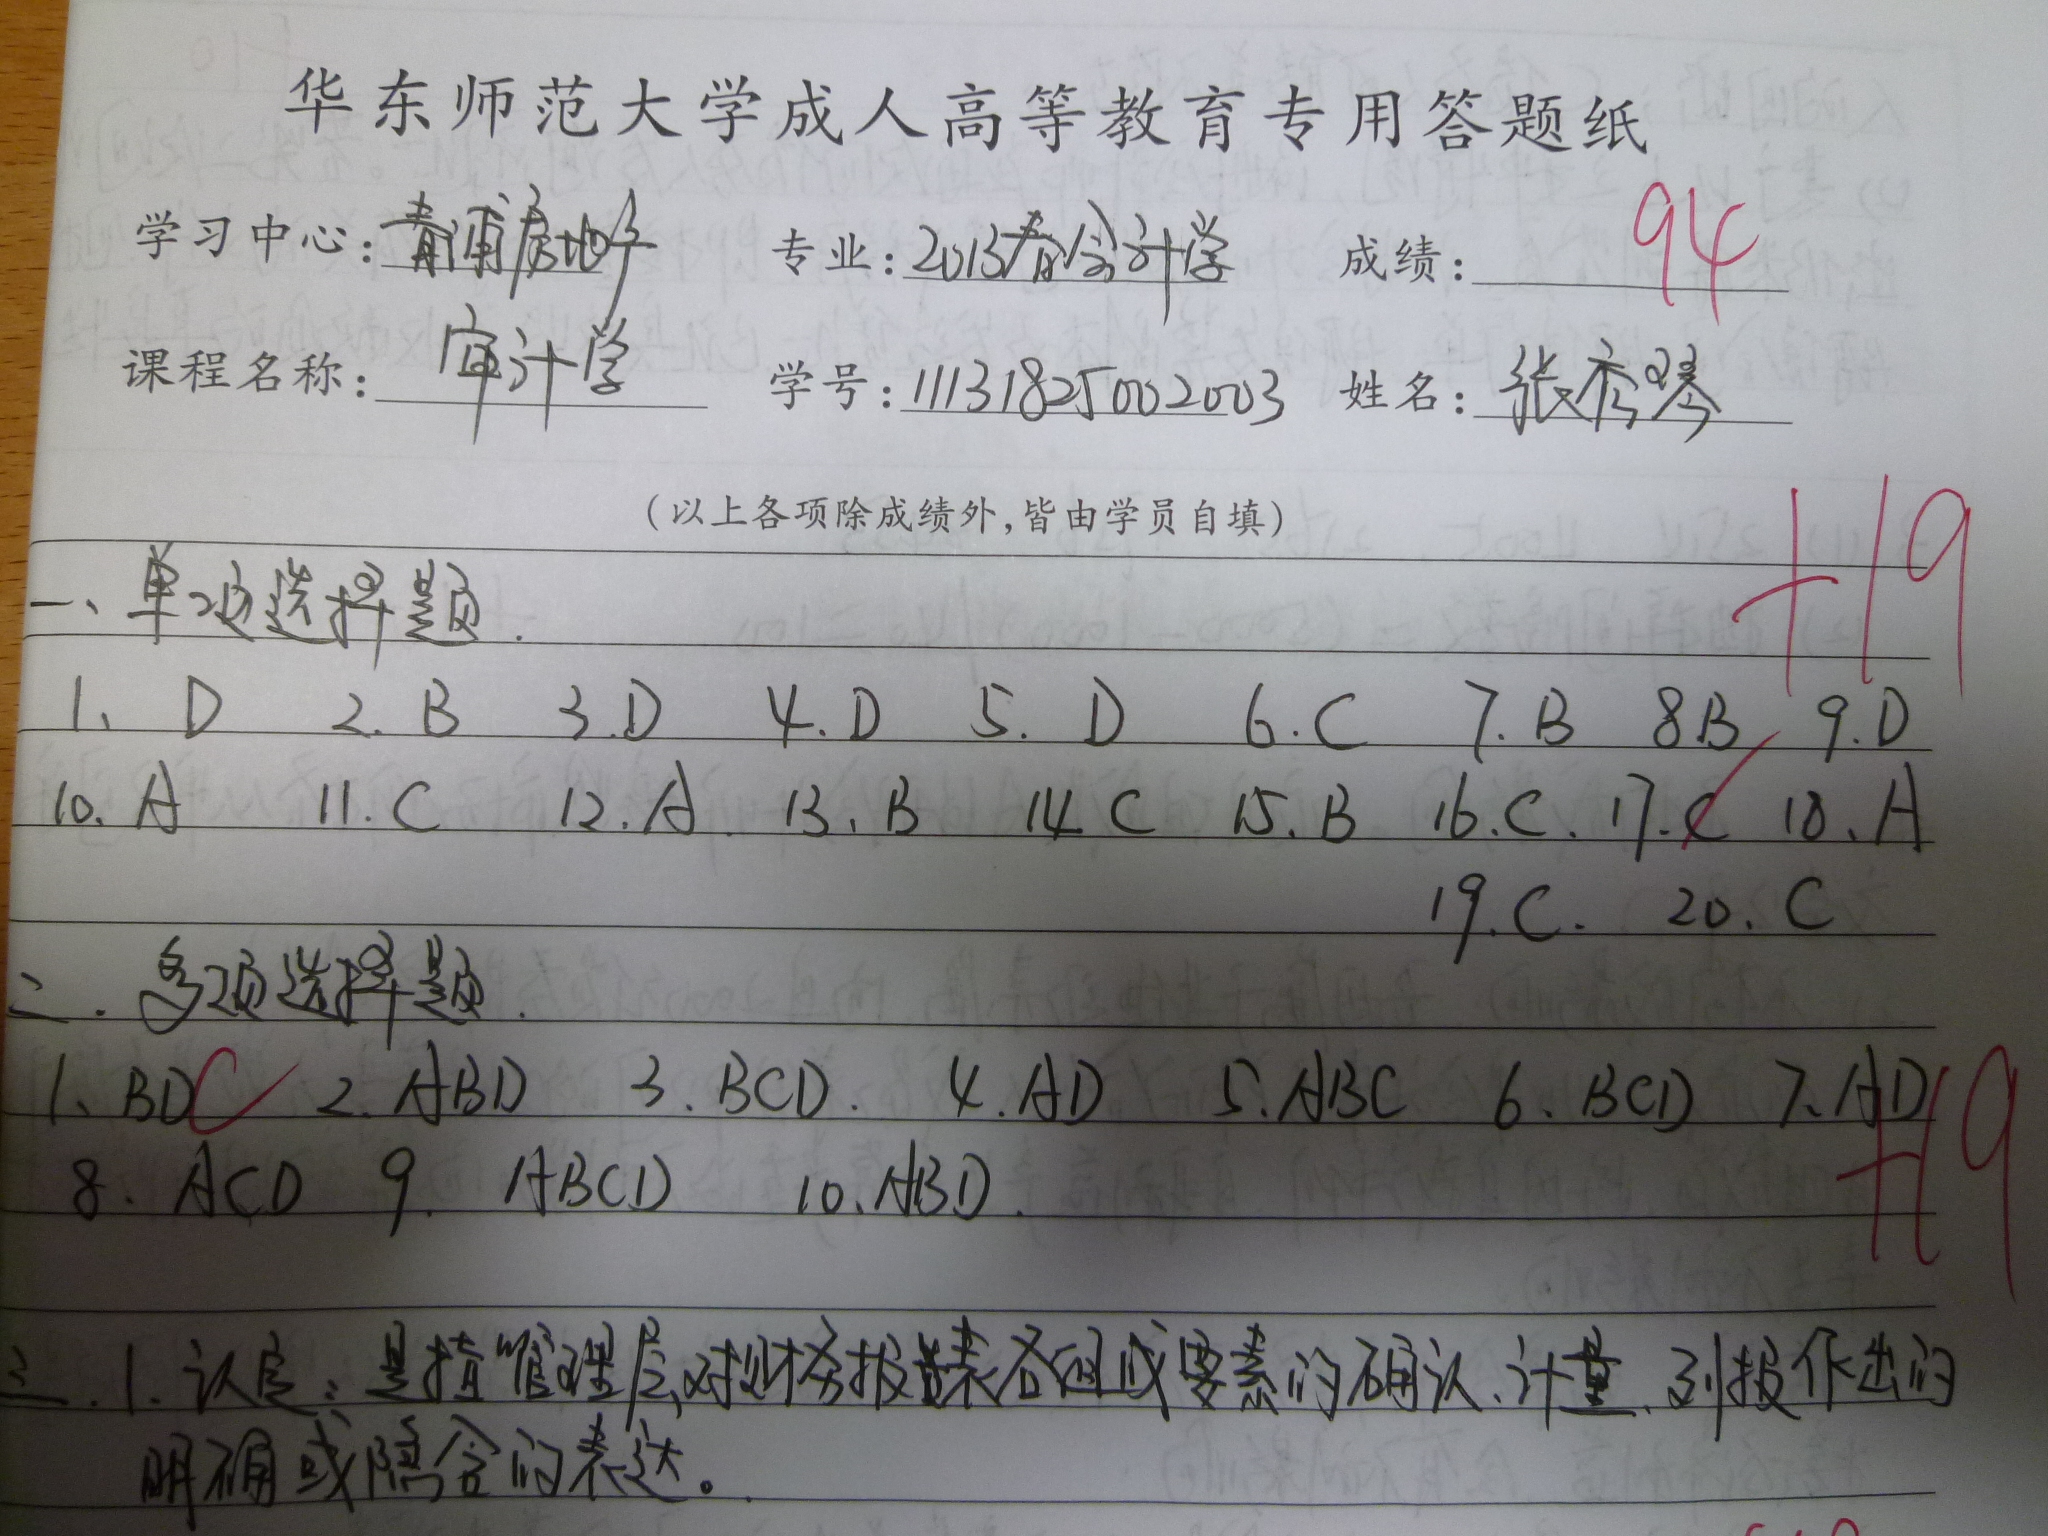 华东师范大学成人高等教育专用答题纸
学习中心: 青浦房地产 专业: 2013春会计学 成绩: 94
课程名称: 审计学 学号: 11131825002003 姓名: 张 琴
(以上各项除成绩外,皆由学员自填)
一、单项选择题. +19
1、D 2.B 3.D 4.D 5.D 6.C 7.B 8B 9.D
10.A 11.C 12.A 13.B 14C 15.B 16.C. 17.C 18.A
19.C. 20.C
二.多项选择题.
1、BDC 2.ABD 3.BCD. 4.AD 5.ABC 6、BCD 7.AD
8.ACD 9.ABCD 10.ABD. +19
三.1.认定:是指管理层对财务报表各组成要素的确认、计量、列报作出的
明确或隐含的表达。